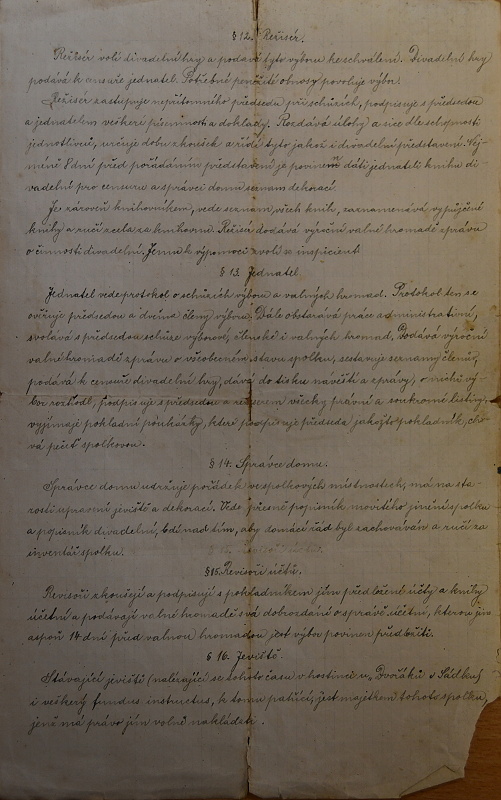 § 12. Režisér.
Režisér volí divadelní hry a podává tyto výboru ke schválení. Divadelní hry
podává k censuře jednatel. Potřebné peněžité obnosy povoluje výbor.
Režisér zastupuje nepřítomného předsedu při schůzích, podpisuje s předsedou
a jednatelem veškeré písemnosti a doklady. Rozdává úlohy a sice dle schopností
jednotlivců, určuje dobu zkoušek a řídí tyto jakož i divadelní představení. Nej-
méně 8 dní před pořádáním představení je povinen dáti jednateli knihu di-
vadelní pro censuru a správci domu seznam dekorací.
Je zároveň knihovníkem, vede seznam všech knih, zaznamenává vypůjčené
knihy a ručí zcela za knihovnu. Režisér dodává výroční valné hromadě zprávu
o činnosti divadelní. Jemu k výpomoci zvolí se inspicient.
§ 13. Jednatel.
Jednatel vede protokol o schůzích výboru a valných hromad. Protokol ten se
ověřuje předsedou a dvěma členy výboru. Dále obstarává práce administrativní,
svolává s předsedou schůze výborové, členské i valných hromad. Dodává výroční
valné hromadě zprávu o všeobecném stavu spolku, sestavuje seznamy členů,
podává k censuře divadelní hry, dává do tisku návěští a zprávy, o nichž vý-
bor rozhodl, podpisuje s předsedou a režisérem všecky právní a soukromé listiny,
vyjímaje pokladní poukázky, které podpisuje předseda jakož to pokladník, cho-
vá pečeť spolkovou.
§ 14. Správce domu.
Správce domu udržuje pořádek ve spolkových místnostech, má na sta-
rosti upravení jeviště a dekorací. Vede přesně popisník movitého jmění spolku
a popisník divadelní, bdí nad tím, aby domácí řád byl zachováván a ručí za
inventář spolku.
§ 15. Revisoři účtů.
Revisoři zkoušejí a podpisují s pokladníkem jim předložené účty a knihy
účetní a podávají valné hromadě svá dobrozdání o správě účetní, kterou jim
aspoň 14 dní před valnou hromadou jest výbor povinen předložiti.
§ 16. Jeviště.
Stávající jeviště (nalézající se toho to času v hostinci u „Dvořáků v Sádku)
i veškerý fundus instructus, k tomu patřící, jest majetkem tohoto spolku,
jenž má právo jím volně nakládati.